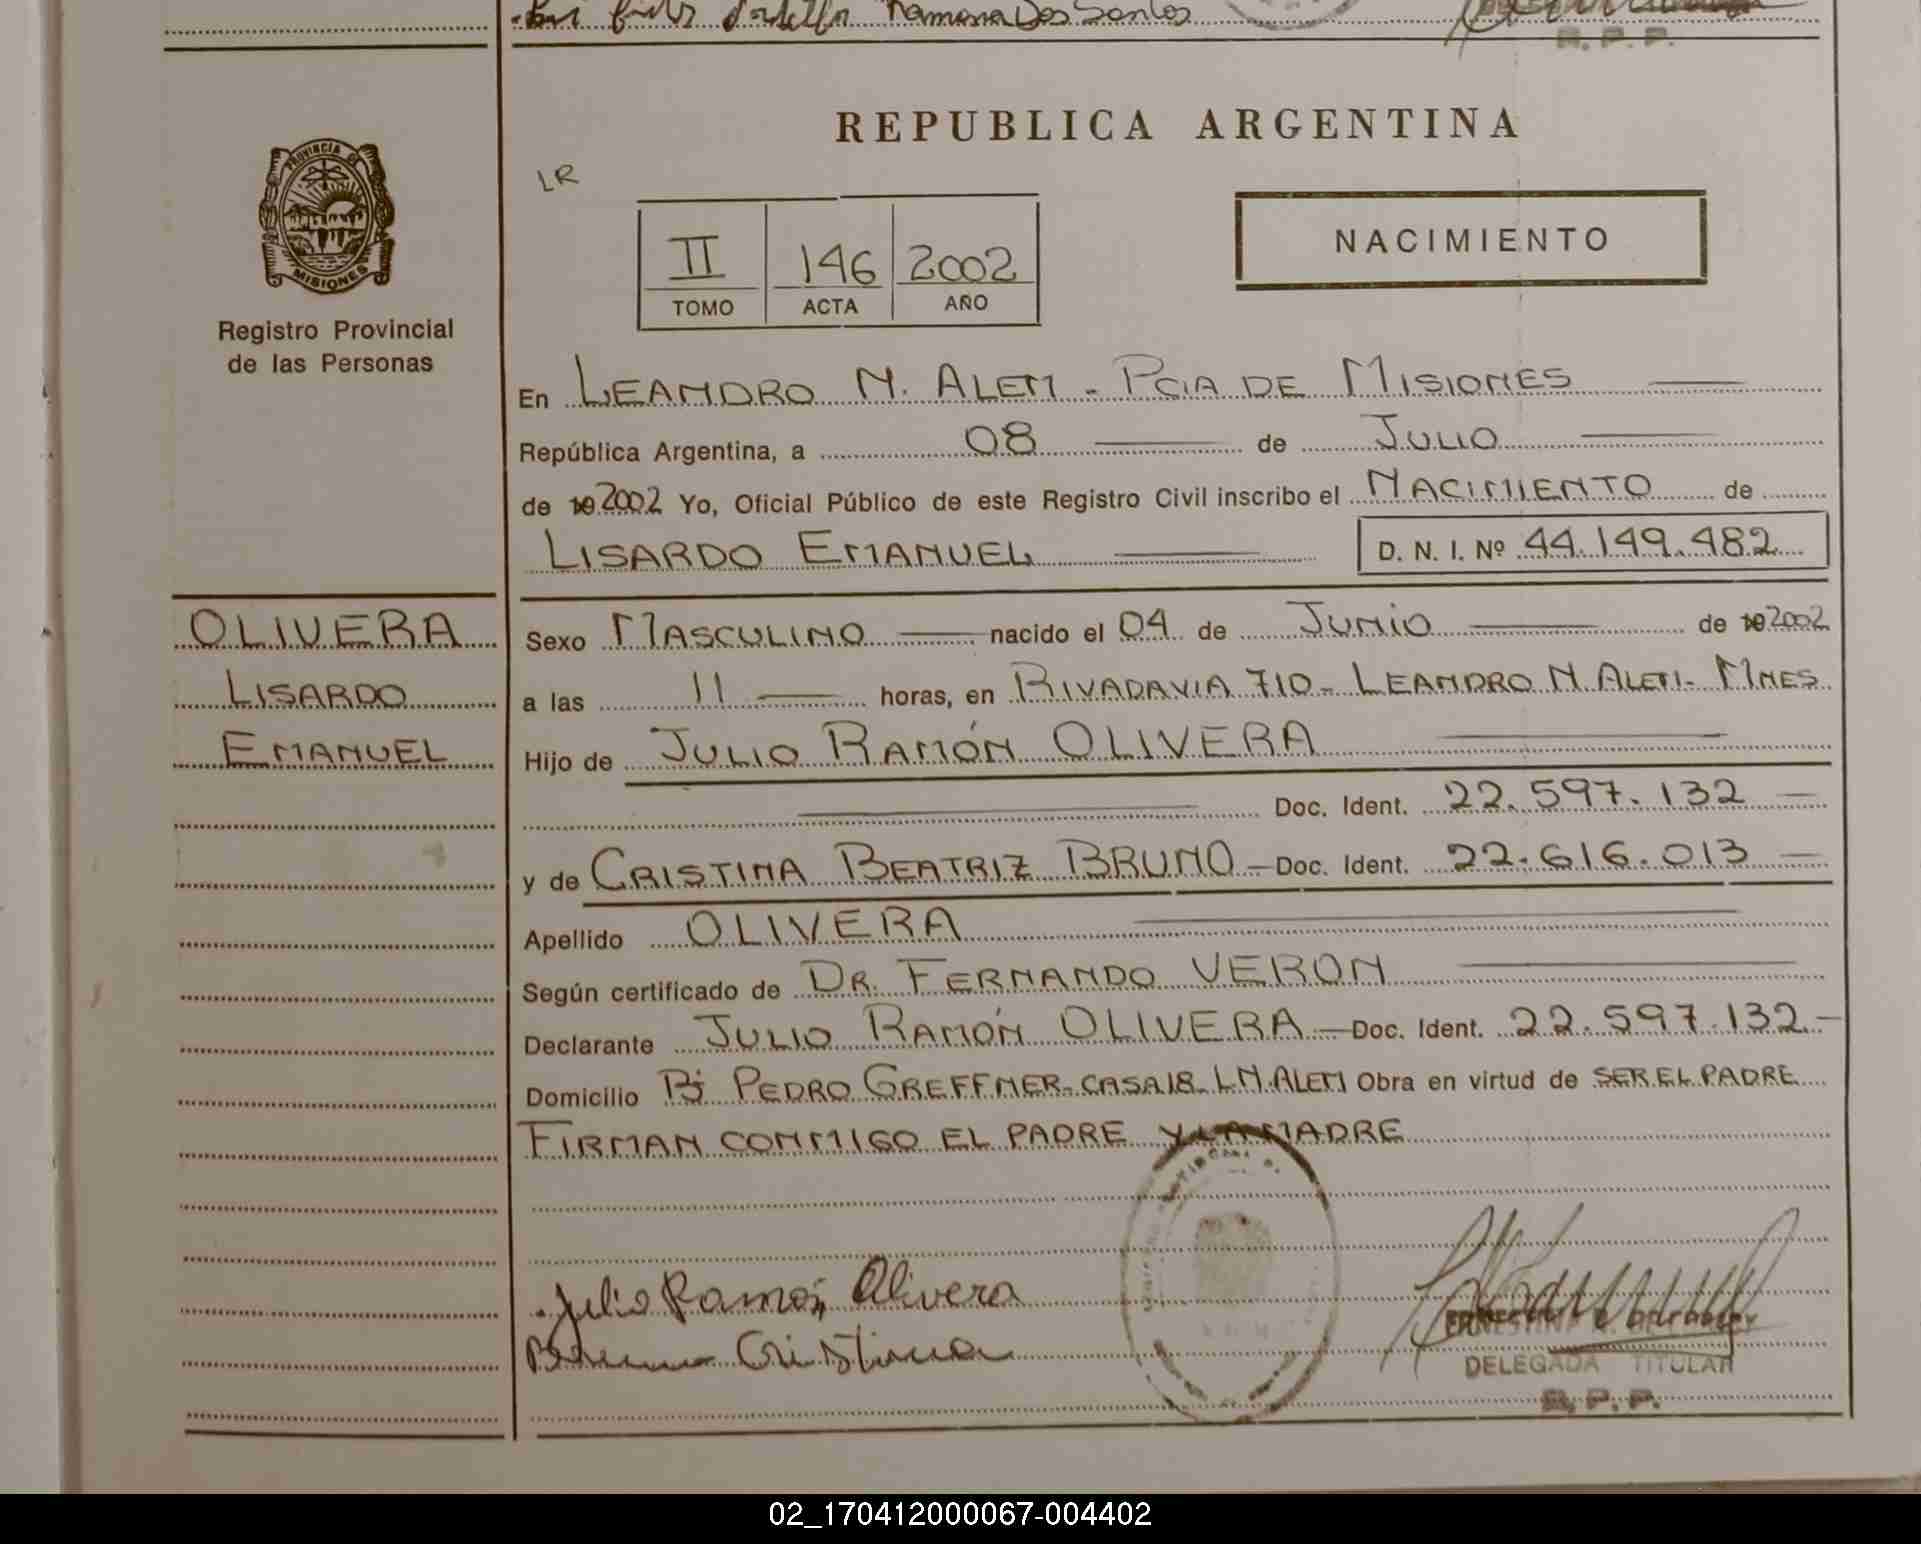 Ramona Dos Santos
R. P. P.
REPUBLICA ARGENTINA
LR
PROVINCIA DE
MISIONES
Registro Provincial
de las Personas
II 146 2002
TOMO ACTA AÑO
NACIMIENTO
En LEANDRO N. ALEM - PCIA DE MISIONES
República Argentina, a 08 de JULIO
de 19 2002 Yo, Oficial Público de este Registro Civil inscribo el NACIMIENTO de
LISARDO EMANUEL D. N. I. Nº 44.149.482
OLIVERA
LISARDO
EMANUEL
Sexo MASCULINO nacido el 04 de JUNIO de 19 2002
a las 11 horas, en RIVADAVIA 710 - LEANDRO N ALEM - MNES
Hijo de JULIO RAMÓN OLIVERA
Doc. Ident. 22.597.132
y de CRISTINA BEATRIZ BRUNO Doc. Ident. 22.616.013
Apellido OLIVERA
Según certificado de DR. FERNANDO VERON
Declarante JULIO RAMÓN OLIVERA Doc. Ident. 22.597.132
Domicilio Bº PEDRO GREFFNER - CASA 18 - L.N. ALEM Obra en virtud de SER EL PADRE
FIRMAN CONMIGO EL PADRE Y LA MADRE
Julio Ramón Olivera
Cristina
DELEGADA TITULAR
R. P. P.
02_170412000067-004402